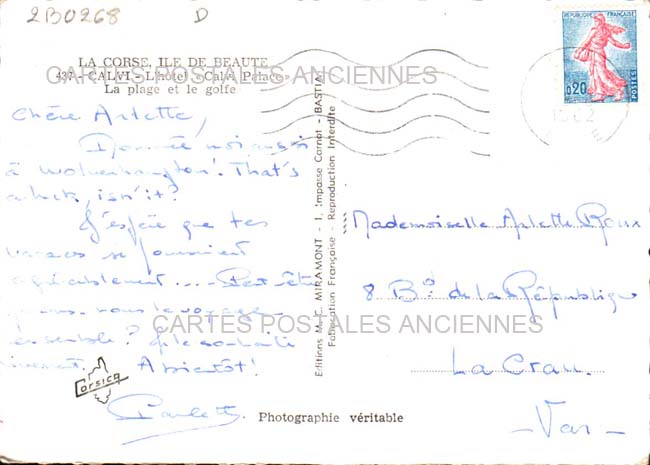 2B0268 D
LA CORSE, ILE DE BEAUTE
437 - CALVI - L'hôtel «Calvi Palace»
La plage et le golfe
CARTES POSTALES ANCIENNES
Chère Arlette,
à Wolverhampton! That's
a luck, isn't it?
J'espère que tes
vacances se poursuivent
agréablement... Peut-être
ferons-nous le voyage
ensemble? Je le souhaite
vivement. A bientôt!
Paulette
Corsica
Photographie véritable
Editions M. C. MIRAMONT - 1, Impasse Carnot - BASTIA
Fabrication Française - Reproduction Interdite
REPUBLIQUE FRANÇAISE
0,20
POSTES
Mademoiselle Arlette Roux
8 Bd de la République
La Crau.
- Var -
CARTES POSTALES ANCIENNES